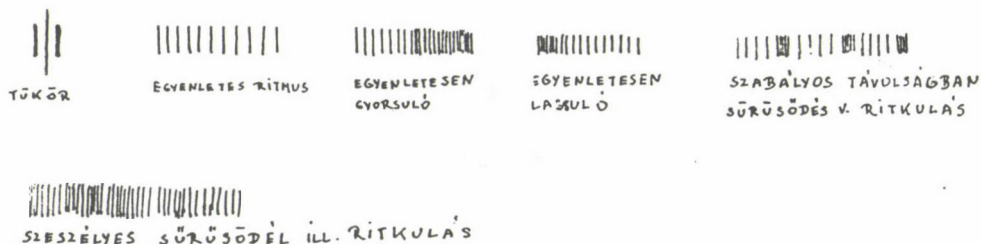 TÜKÖR
EGYENLETES RITMUS
EGYENLETESEN
GYORSULÓ
EGYENLETESEN
LASSULÓ
SZABÁLYOS TÁVOLSÁGBAN
SŰRŰSÖDÉS V. RITKULÁS
SZESZÉLYES SŰRŰSÖDÉL ILL. RITKULÁS